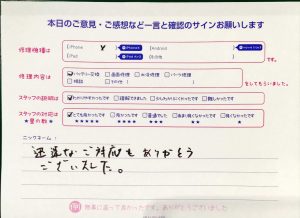 本日のご意見・ご感想など一言と確認のサインお願いします
修理機種は
iPhone
Android
iPad
です。
修理内容は
バッテリー交換 画面修理 水没修理 パーツ修理
その他
をしてもらいました。
スタッフの説明は
わかりやすかったです 理解できました 少しわかりにくかったです 難しかったです
スタッフの対応は
★の数♪
とても良かったです 良かったです 普通でした あまり良くなかったです 良くなかったです
★★★★★ ★★★★ ★★★ ★★ ★
ニックネーム：
迅速なご対応ありがとう
ございました。
無事に直って良かったです。ありがとうございました